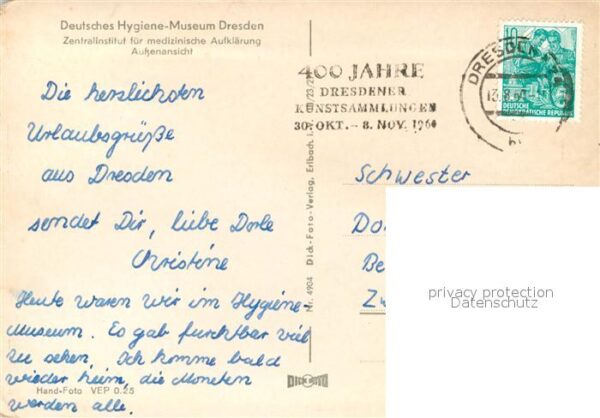 Deutsches Hygiene-Museum Dresden
Zentralinstitut für medizinische Aufklärung
Außenansicht
Die herzlichsten
Urlaubsgrüße
aus Dresden
sendet Dir, liebe Dorle
Christine
Heute waren wir im Hygiene-
Museum. Es gab furchtbar viel
zu sehen. Ich komme bald
wieder heim, die Moneten
werden alle.
Hand-Foto VEP 0.25
Nr. 4904 Dick-Foto-Verlag, Erlbach i.
400 JAHRE
DRESDENER
KUNSTSAMMLUNGEN
30. OKT. – 8. NOV. 1960
DRESDEN
10
DEUTSCHE
DEMOKRATISCHE REPUBLIK
Schwester
privacy protection
Datenschutz